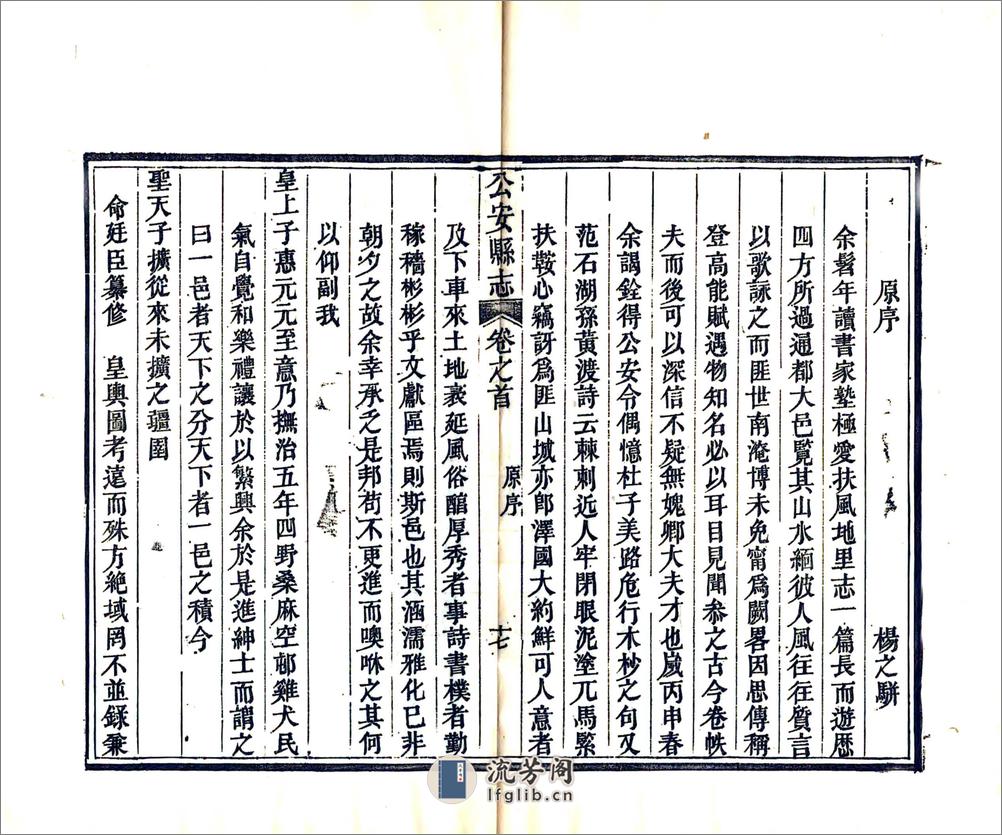 原序　楊之駢
余髫年讀書家塾極愛扶風地里志一篇長而遊歴
四方所過通都大邑覽其山水緬彼人風往往質言
以歌詠之而匪世南淹博未免甯爲闕畧因思傳稱
登高能賦遇物知名必以耳目見聞叅之古今卷帙
夫而後可以深信不疑無媿卿大夫才也歲丙申春
余謁銓得公安令偶憶杜子美路危行木杪之句又
范石湖孫黃渡詩云棘刺近人牢閉眼泥塗兀馬緊
扶鞍心竊訝爲匪山城亦卽澤國大約鮮可人意者
公安縣志　卷之首　原序　十七
及下車來土地衺延風俗醕厚秀者事詩書樸者勤
稼穡彬彬乎文獻區焉則斯邑也其涵濡雅化已非
朝夕之故余幸承乏是邦苟不更進而噢咻之其何
以仰副我
皇上子惠元元至意乃撫治五年四野桑麻空邨雞犬民
氣自覺和樂禮讓於以繁興余於是進紳士而謂之
曰一邑者天下之分天下者一邑之積今
聖天子擴從來未擴之疆圉
命廷臣纂修　皇輿圖考遠而殊方絶域罔不並録兼
流芳阁
lfglib.cn